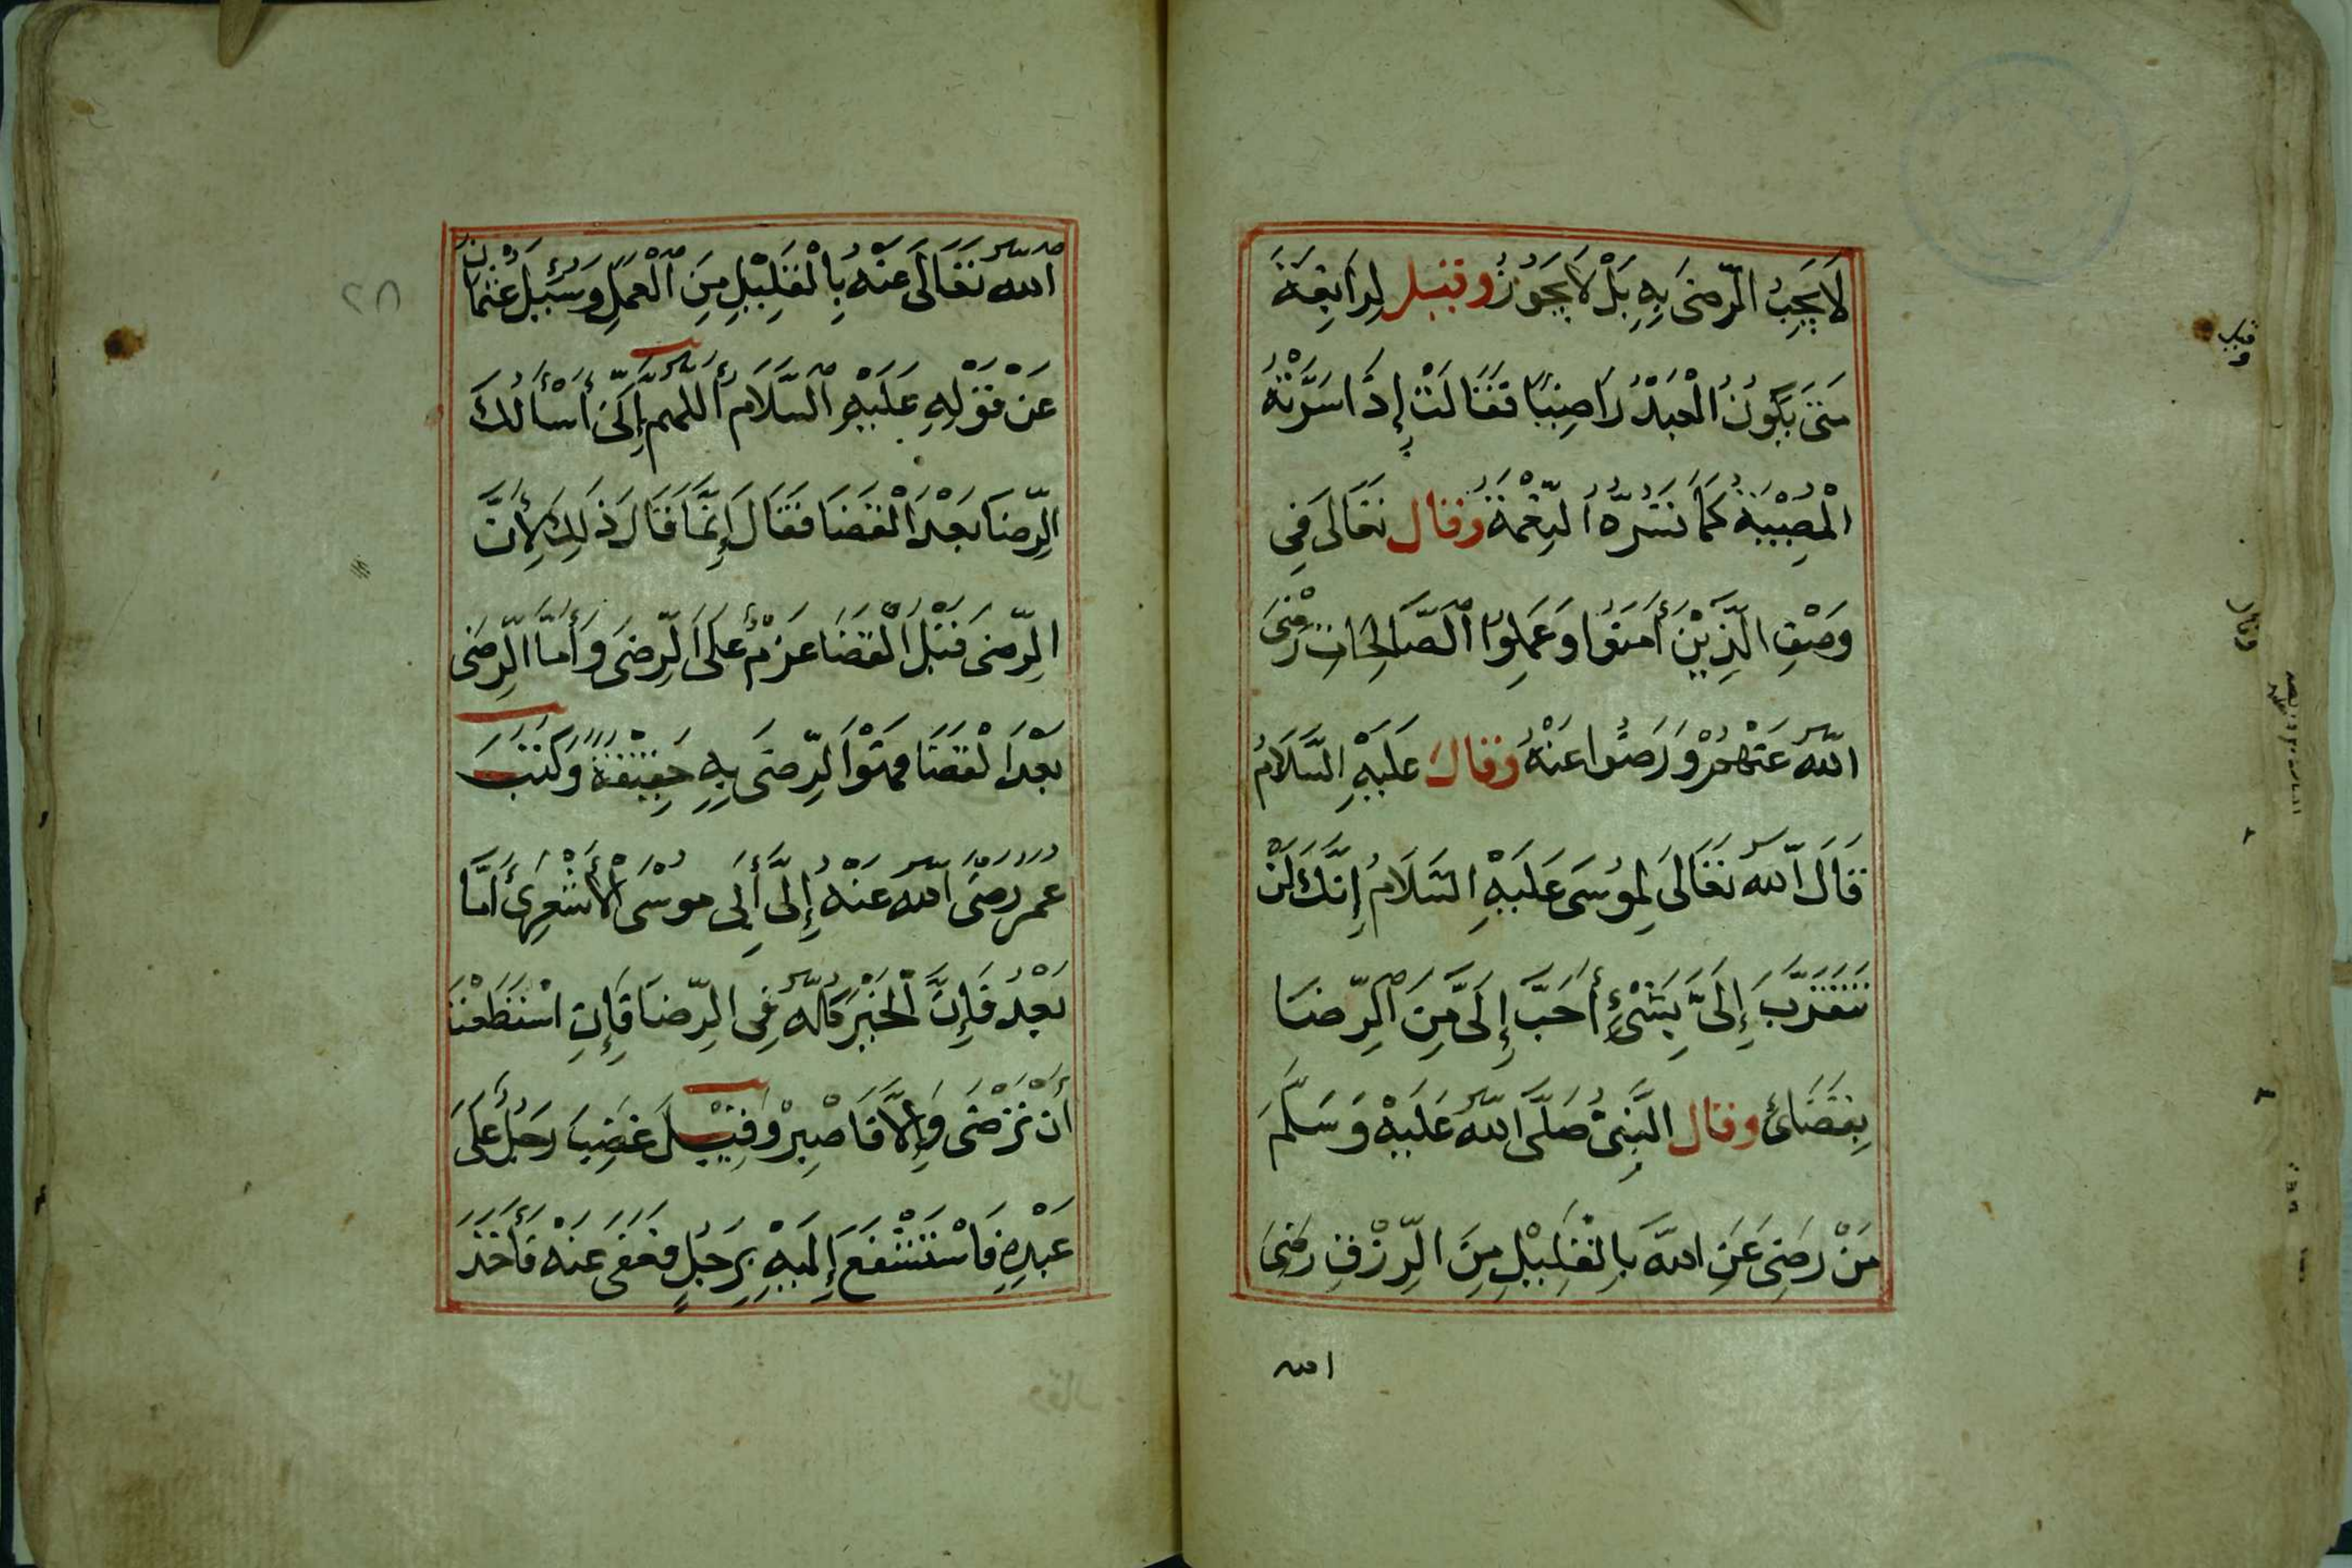 لَا يَجِبُ الرِّضَى بِهِ بَلْ لَا يَجُوزُ وقيل لِرَابِعَةَ
مَتَى يَكُونُ الْعَبْدُ رَاضِيًا فَقَالَتْ إِذَا سَرَّتْهُ
الْمُصِيْبَةُ كَمَا تَسُرُّهُ النِّعْمَةُ وقال تَعَالَى فِي
وَصْفِ الَّذِيْنَ أَمَنُوا وَعَمِلُوا الصَّالِحَاتِ رَضِيَ
اللّهُ عَنْهُمْ وَرَضُوا عَنْهُ وقال عَلَيْهِ السَّلَامُ
قَالَ اللّهُ تَعَالَى لِمُوسَى عَلَيْهِ السَّلَامُ إِنَّكَ لَنْ
تَتَقَرَّبَ إِلَىَّ بِشَىْءٍ أَحَبَّ إِلَىَّ مِنَ الرِّضَا
بِقَضَائ وقال النَّبِىُّ صَلَّى اللّهُ عَلَيْهِ وَسَلَّمَ
مَنْ رَضِىَ عَنِ اللّهِ بِالْقَلِيْلِ مِنَ الرِّزْقِ رَضِىَ
الله
اللّهُ تَعَالَى عَنْهُ بِالْقَلِيْلِ مِنَ الْعَمَلِ وَسُئِلَ عُثْمَانُ
عَنْ قَوْلِهِ عَلَيْهِ السَّلَامُ أَللهم إِنِّى أَسْأَلُكَ
الرِّضَا بَعْدَ الْقَضَا فَقَالَ إِنَّمَا قَالَ ذَلِكَ لِأَنَّ
الرِّضَى قَبْلَ الْقَضَا عَزْمٌ عَلَى الرِّضَى وَأَمَّا الرِّضَى
بَعْدَ الْقَضَا فَهُوَ الرِّضَى بِهِ حَقِيْقَةً وَكَتَبَ
عُمَرُ رَضِىَ اللّهُ عَنْهُ إِلَى أَبِى مُوسَى الْأَشْعَرِىِّ أَمَّا
بَعْدُ فَإِنَّ الْخَيْرَ كُلَّهُ فِى الرِّضَا فَإِنِ اسْتَطَعْتَ
أَنْ تَرْضَى وَإِلَّا فَاصْبِرْ وَقِيْلَ غَضِبَ رَجُلٌ عَلَى
عَبْدِهِ فَاسْتَشْفَعَ إِلَيْهِ بِرَجُلٍ فَعَفَى عَنْهُ فَأَخَذَ
٢٨